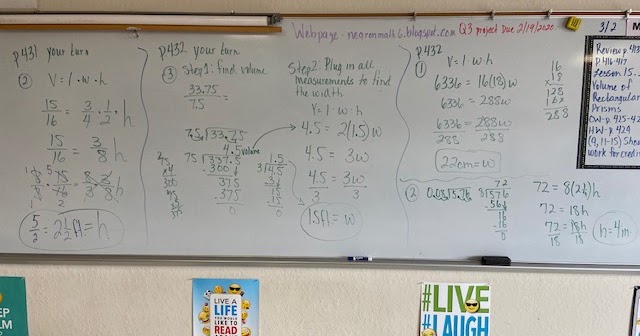 Webpage - negronmath6.blogspot.com Q3 project Due 2/19/2020
p431 your turn
② V = l · w · h
15/16 = 3/4 · 1/2 · h
15/16 = 3/8 h
5/2 = 2 1/2 ft = h
p432 your turn
③ Step 1: find volume
33.75
7.5
7.5 33.75
4.5 volume
75 337.5
300
375
375
0
1.5
3 4.5
3
15
15
0
Step 2: Plug in all
measurements to find
the width
V = l · w · h
4.5 = 2(1.5)w
4.5 = 3w
4.5 = 3w
3 3
1.5ft = w
p432
① V = l · w · h
6336 = 16(18)w
6336 = 288w
6336 = 288w
288 288
22cm = w
16
18
128
16x
288
② 0.08 5.76
72
8 576
56
16
16
0
72 = 8(2 1/4)h
72 = 18h
72 = 18h
18 18
h = 4m
3/2 M
Review p.413
p.416-417
Lesson 15.
Volume of
Rectangular
Prisms
CW-p.425-42
HW-p.429
(9, 11-15) Show
work for credit
EP
LM
LIVE A
LIFE
YOU WOULD
LIKE TO
READ
#LIVE
#LAUGH